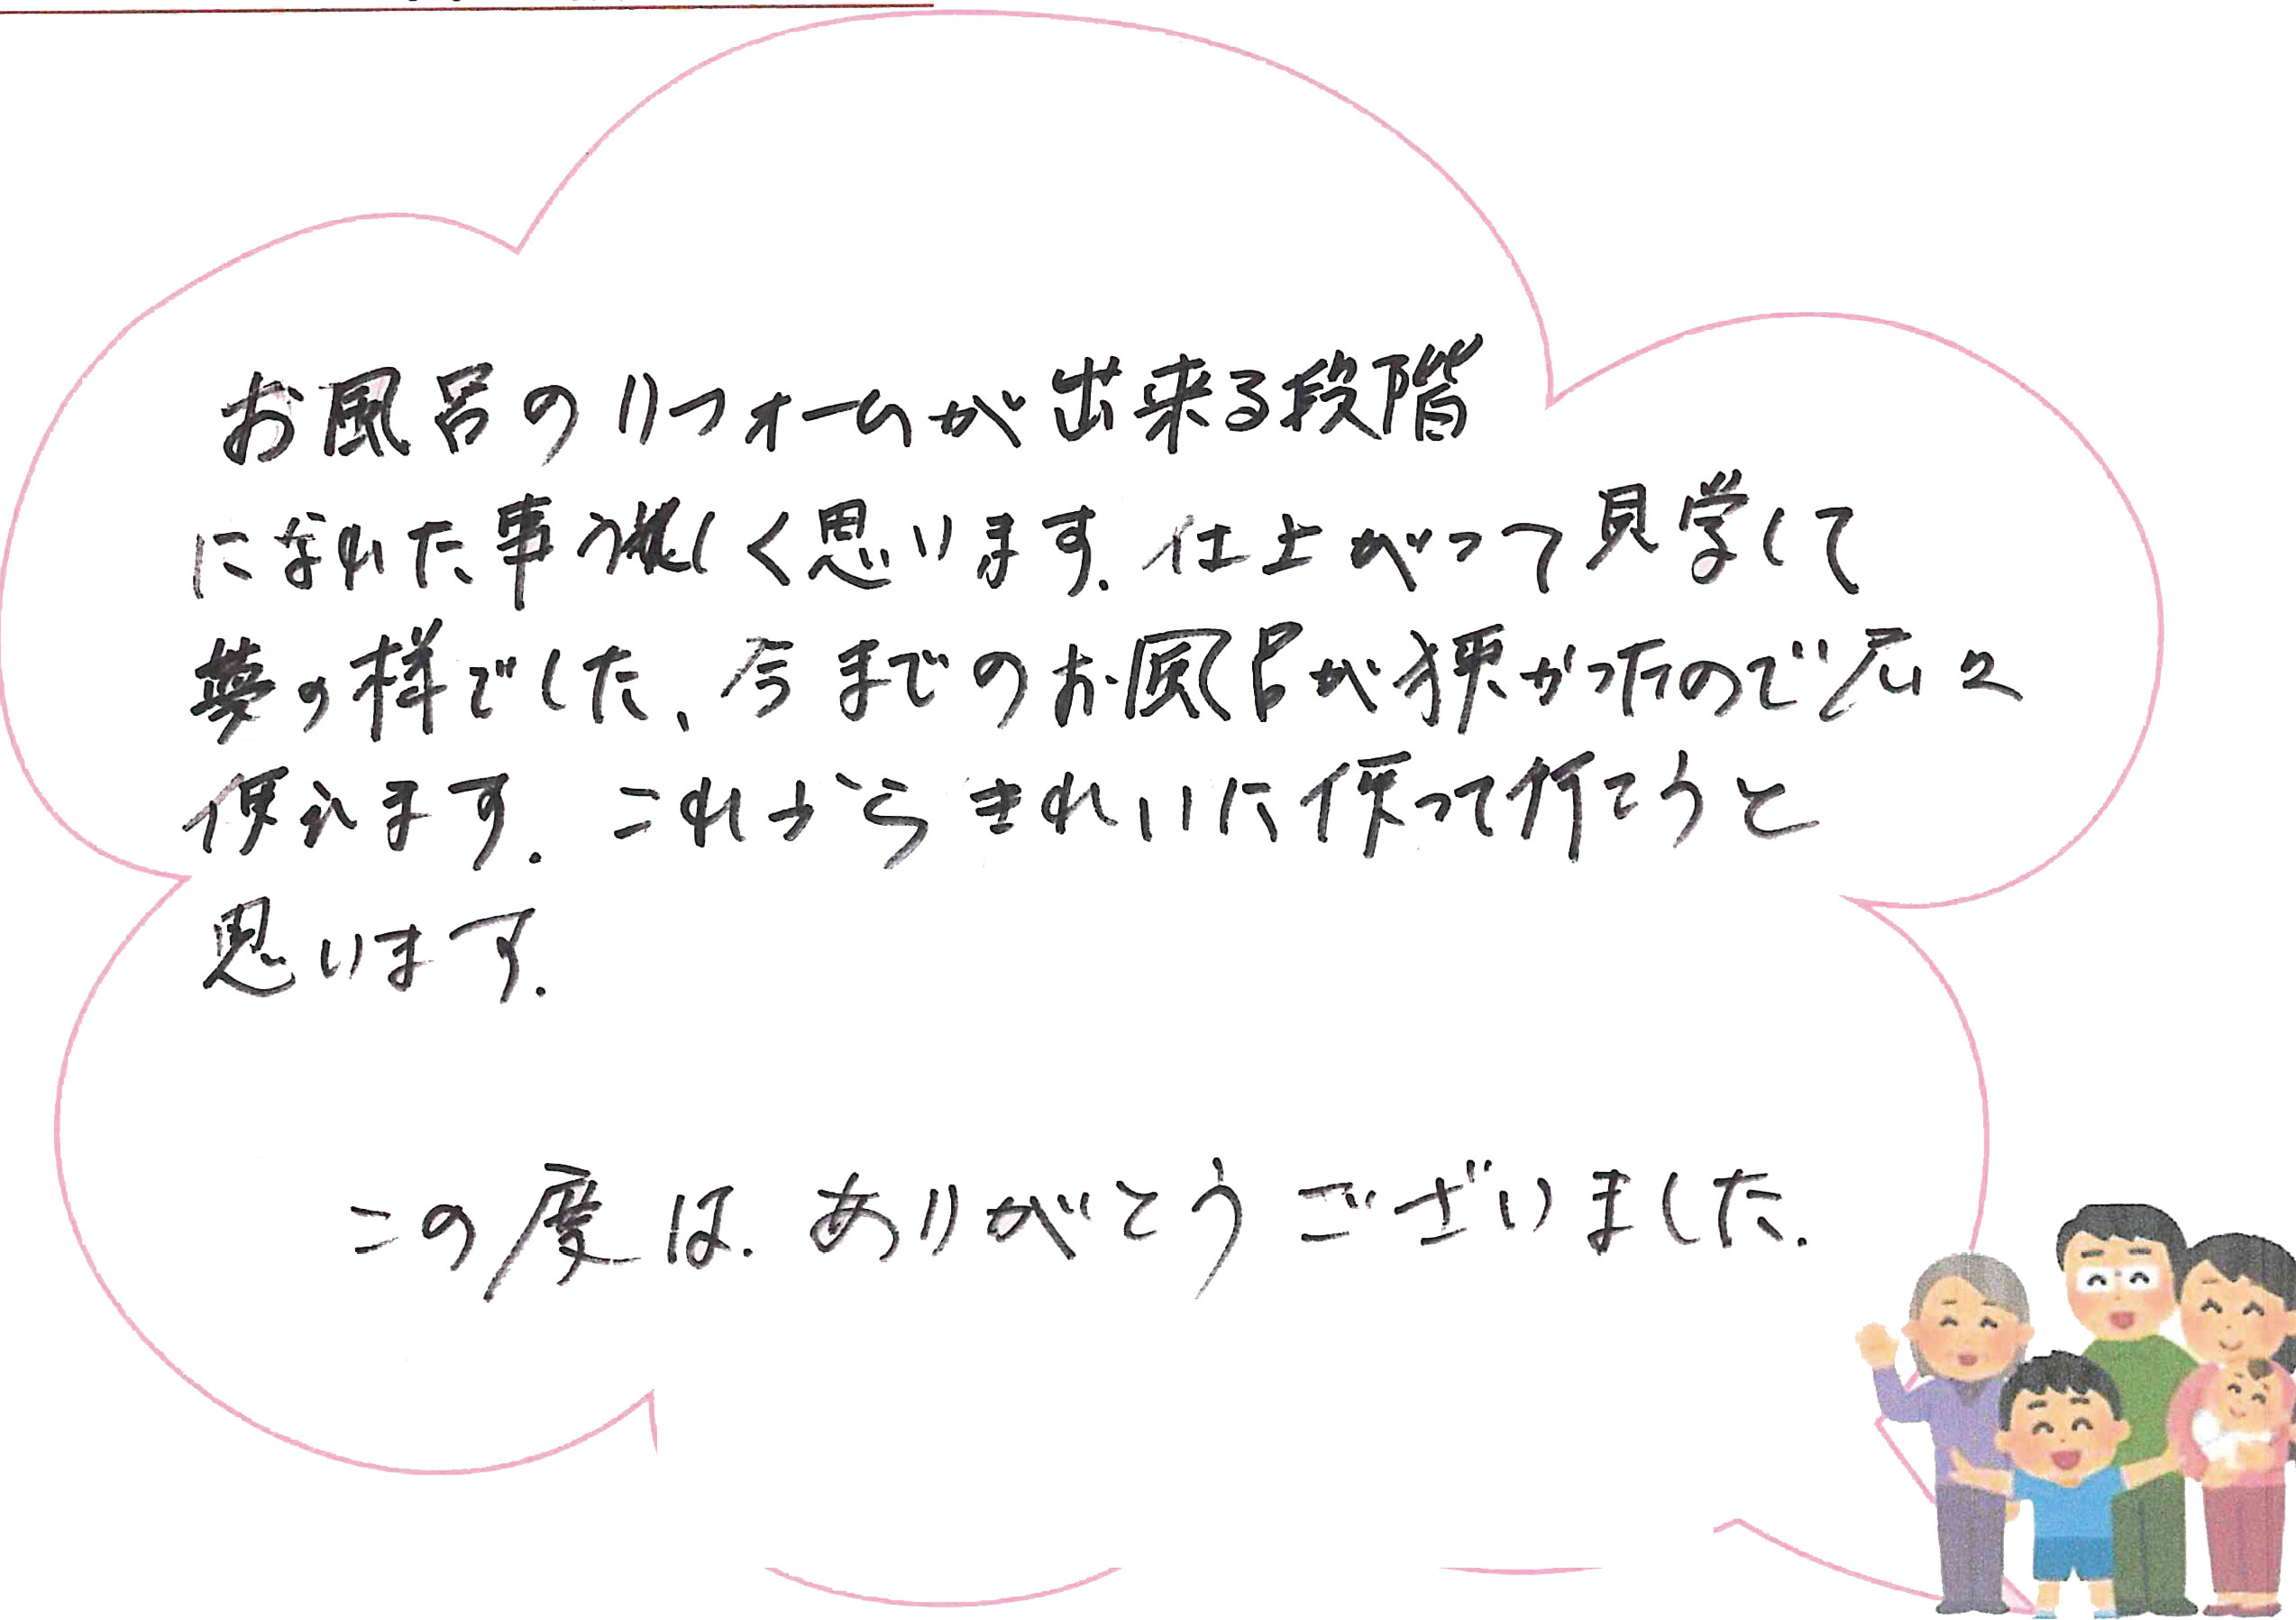 お風呂のリフォームが出来る段階
になれた事うれしく思います.仕上がって見学して
夢の様でした、今までのお風呂が狭かったので広々
使えます.これからきれいに使って行こうと
思います.
この度は.ありがとうございました.